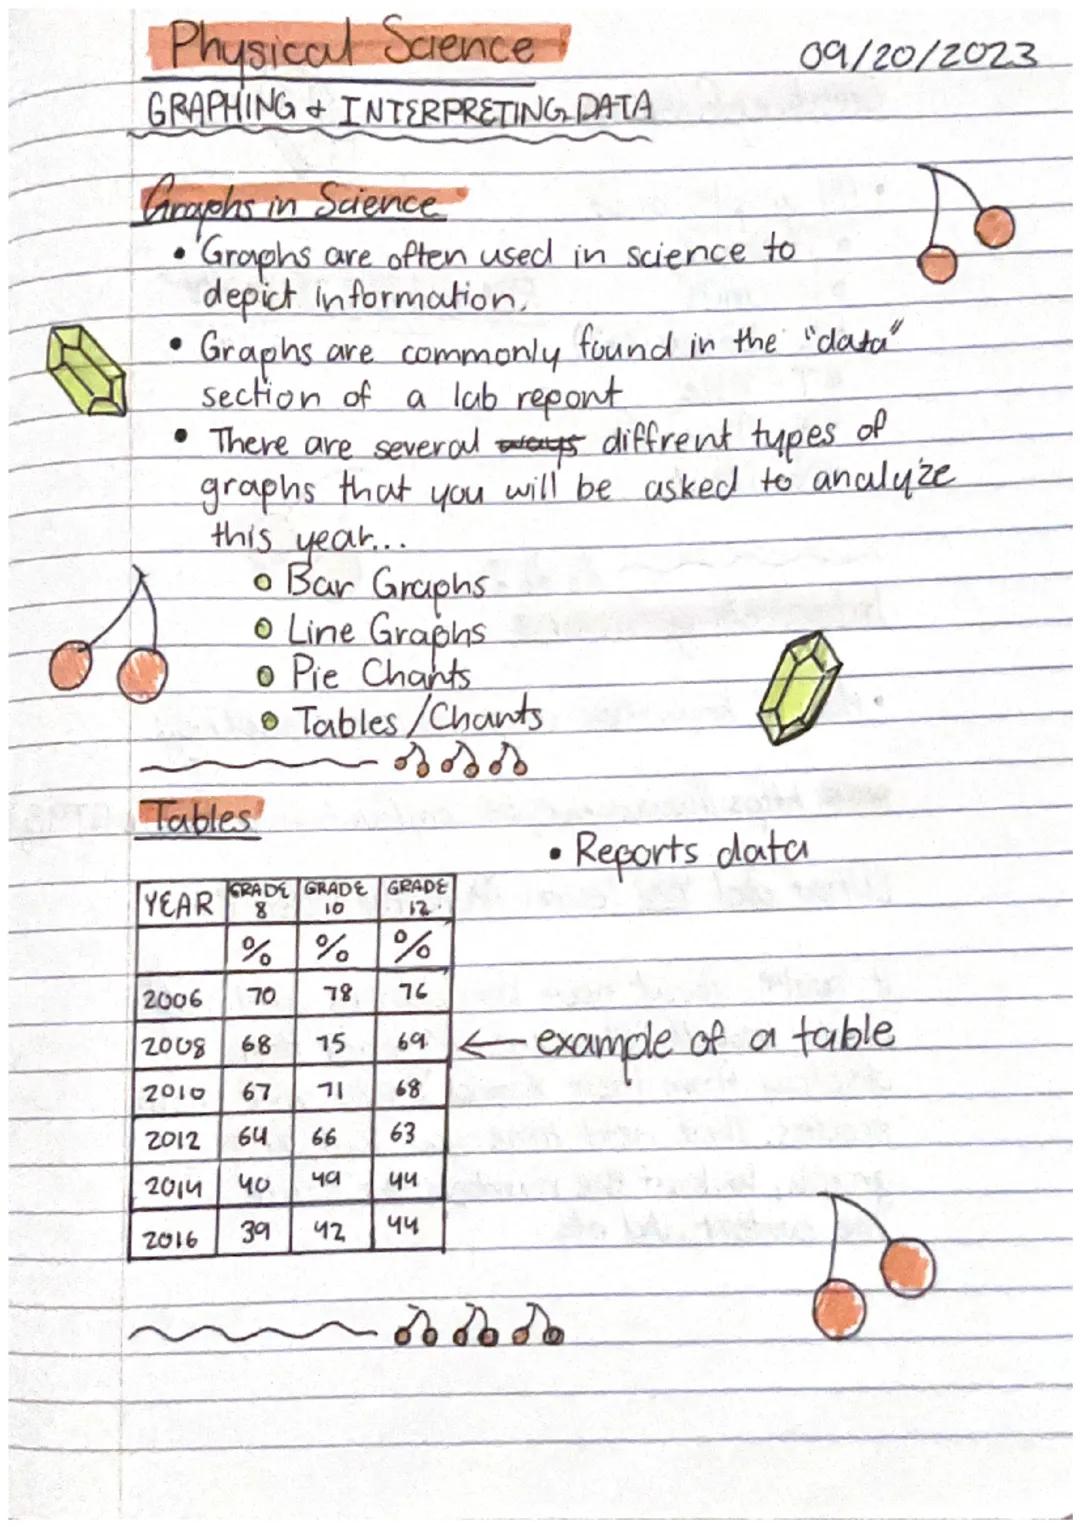 Physical Science
09/20/2023
GRAPHING & INTERPRETING DATA
Graphs in Science
• Graphs are often used in science to
depict information.
• Graphs are commonly found in the "data"
section of a lab report
• There are several ways diffrent types of
graphs that you will be asked to analyze
this year...
Bar Graphs
Line Graphs
Pie Charts
Tables/Charts
Tables
• Reports data
YEAR GRADE 8 GRADE 10 GRADE 12
% % %
2006 70 78 76
2008 68 75 69
← example of a table
2010 67 71 68
2012 64 66 63
2014 40 49 44
2016 39 42 44